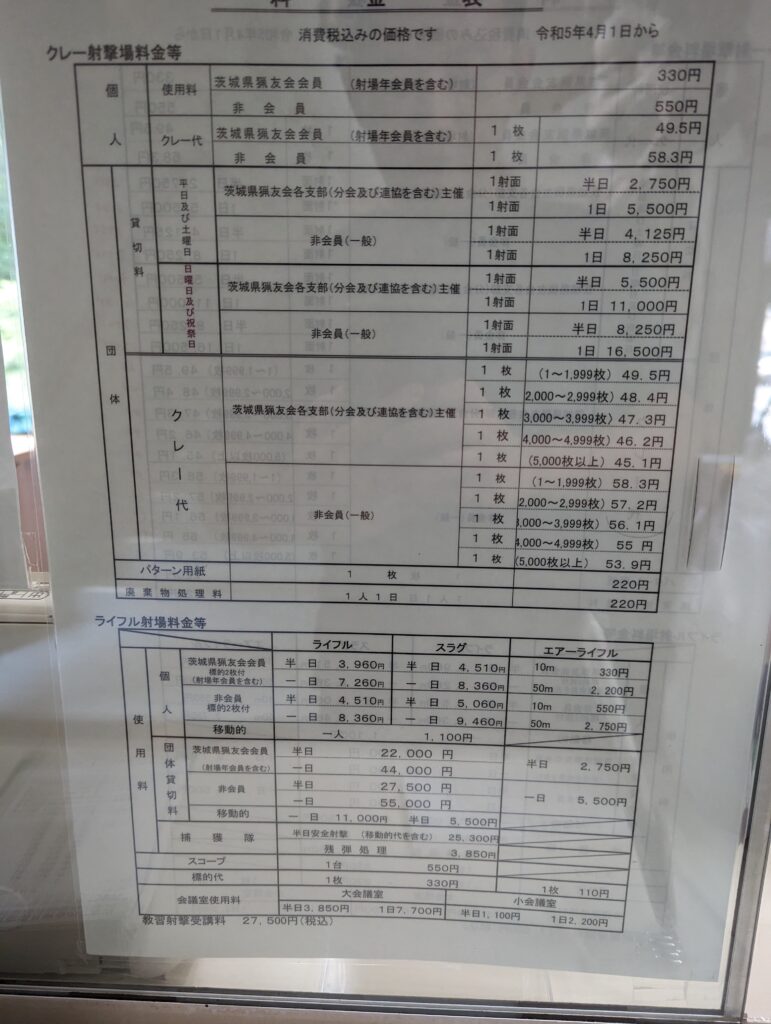 料 金 表
消費税込みの価格です 令和5年4月1日から
クレー射撃場料金等
個人 使用料 茨城県猟友会会員 (射場年会員を含む) 330円
非会員 550円
クレー代 茨城県猟友会会員 (射場年会員を含む) 1枚 49.5円
非会員 1枚 58.3円
団体 貸切料 平日及び土曜日 茨城県猟友会各支部(分会及び連協を含む)主催 1射面 半日 2,750円
1射面 1日 5,500円
非会員(一般) 1射面 半日 4,125円
1射面 1日 8,250円
日曜日及び祝祭日 茨城県猟友会各支部(分会及び連協を含む)主催 1射面 半日 5,500円
1射面 1日 11,000円
非会員(一般) 1射面 半日 8,250円
1射面 1日 16,500円
クレー代 茨城県猟友会各支部(分会及び連協を含む)主催 1枚 (1〜1,999枚) 49.5円
1枚 2,000〜2,999枚) 48.4円
1枚 3,000〜3,999枚) 47.3円
1枚 4,000〜4,999枚) 46.2円
1枚 (5,000枚以上) 45.1円
非会員(一般) 1枚 (1〜1,999枚) 58.3円
1枚 2,000〜2,999枚) 57.2円
1枚 3,000〜3,999枚) 56.1円
1枚 4,000〜4,999枚) 55 円
1枚 (5,000枚以上) 53.9円
パターン用紙 1 枚 220円
廃棄物処理料 1人1日 220円
ライフル射場料金等
ライフル スラグ エアーライフル
使用料 個人 茨城県猟友会会員 標的2枚付 (射場年会員を含む) 半日 3,960円 半日 4,510円 10m 330円
一日 7,260円 一日 8,360円 50m 2,200円
非会員 標的2枚付 半日 4,510円 半日 5,060円 10m 550円
一日 8,360円 一日 9,460円 50m 2,750円
移動的 一人 1,100円
団体貸切料 茨城県猟友会会員 (射場年会員を含む) 半日 22,000 円 半日 2,750円
一日 44,000 円
非会員 半日 27,500 円 一日 5,500円
一日 55,000 円
移動的 一日 11,000円 半日 5,500円
捕獲隊 半日安全射撃 (移動的代を含む) 25,300円
残弾処理 3,850円
スコープ 1台 550円
標的代 1枚 330円 1枚 110円
会議室使用料 大会議室 小会議室
半日3,850円 1日7,700円 半日1,100円 1日2,200円
教習射撃受講料 27,500円(税込)